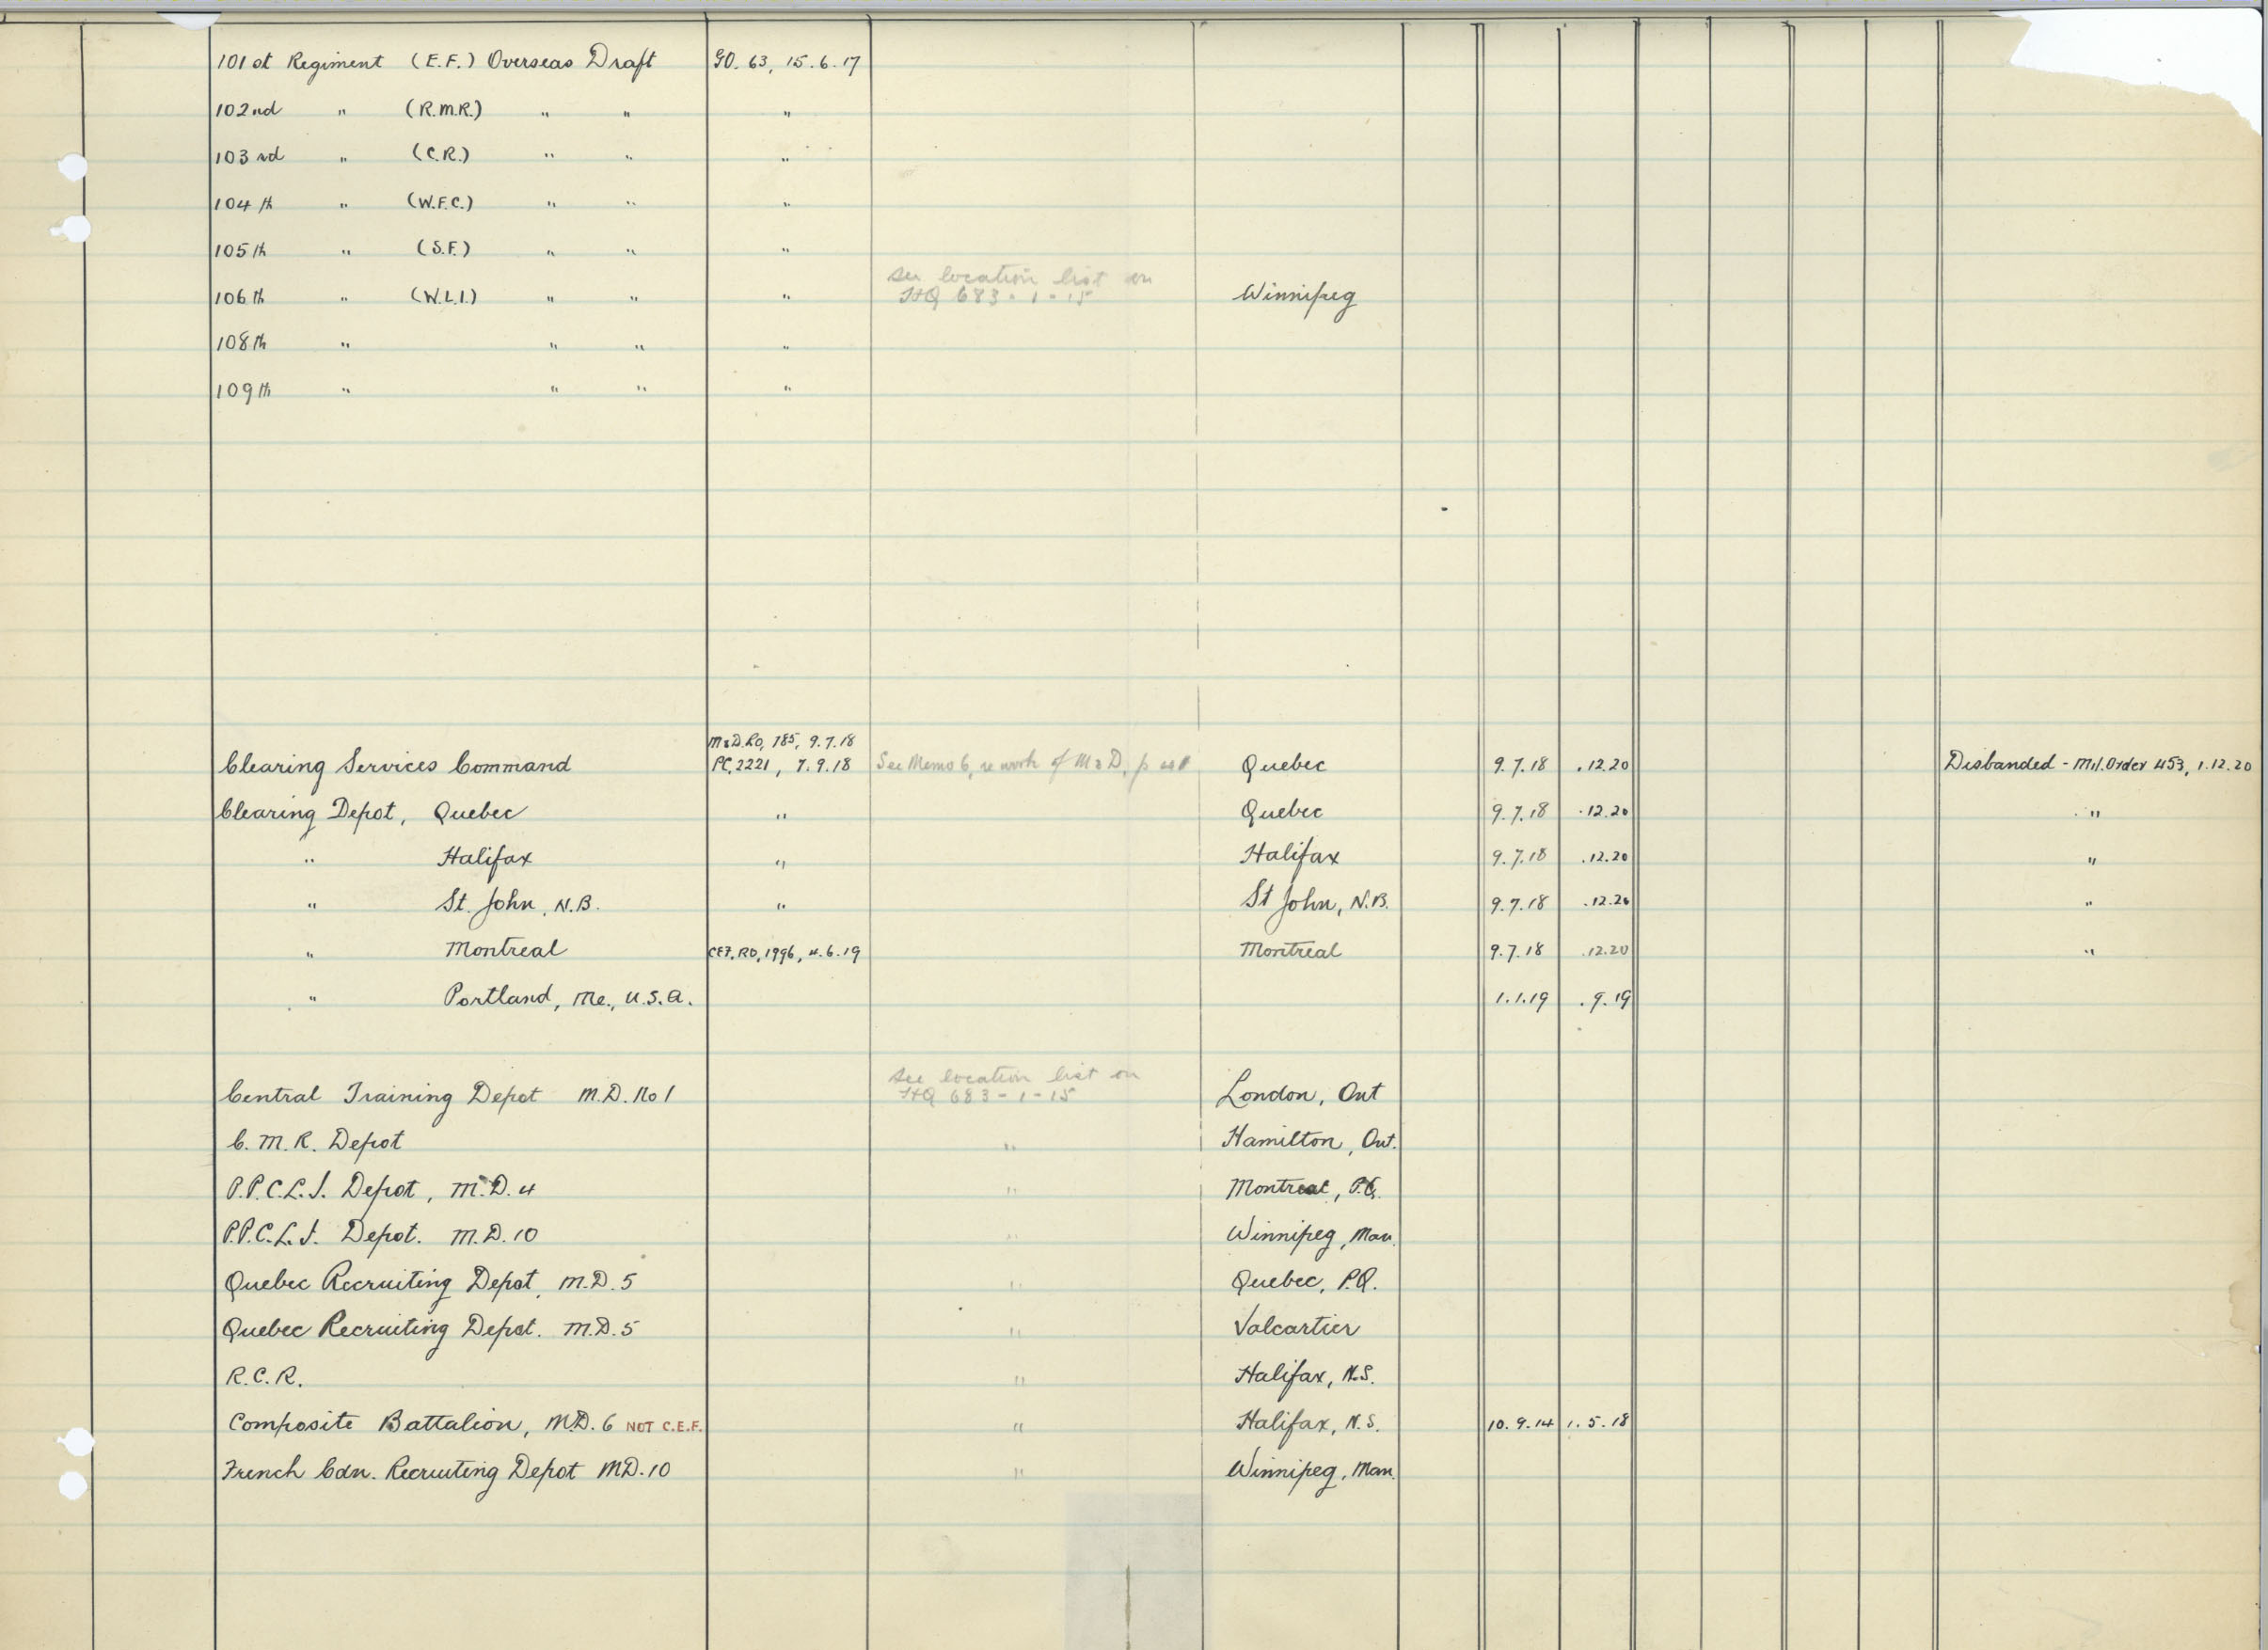 101st Regiment (E.F.) Overseas Draft GO. 63, 15.6.17
102nd " (R.M.R.) " " "
103rd " (C.R.) " " "
104th " (W.F.C.) " " "
105th " (S.F.) " " "
see location list on
106th " (W.L.I.) " " " HQ 683-1-15 Winnipeg
108th " " " "
109th " " " "
M&D.RO, 785, 9.7.18
Clearing Services Command PC. 2221, 7.9.18 See Memo 6, re work of M&D, p Quebec 9.7.18 .12.20 Disbanded - Mil. Order 453, 1.12.20
Clearing Depot, Quebec " Quebec 9.7.18 .12.20 "
" Halifax " Halifax 9.7.18 .12.20 "
" St. John, N.B. " St John, N.B. 9.7.18 .12.20 "
" Montreal CEF. RO, 1996, 4.6.19 Montreal 9.7.18 .12.20 "
" Portland, Me., U.S.A. 1.1.19 .9.19
see location list on
Central Training Depot M.D. No 1 HQ 683-1-15 London, Ont
C.M.R. Depot " Hamilton, Ont.
P.P.C.L.I. Depot, M.D. 4 " Montreal, P.Q.
P.P.C.L.I. Depot. M.D. 10 " Winnipeg, Man.
Quebec Recruiting Depot, M.D. 5 " Quebec, P.Q.
Quebec Recruiting Depot. M.D. 5 " Valcartier
R.C.R. " Halifax, N.S.
Composite Battalion, M.D. 6 NOT C.E.F. " Halifax, N.S. 10.9.14 1.5.18
French Cdn. Recruiting Depot M.D. 10 " Winnipeg, Man.